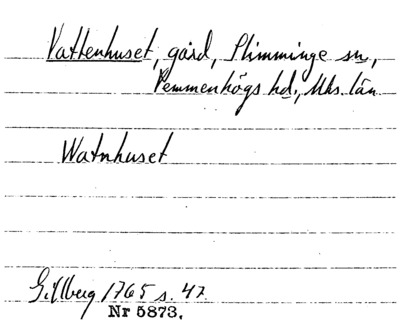 Vattenhuset, gård, Slimminge sn,
Vemmenhögs hd., Mhs. län
Watnhuset
Gillberg 1765 s. 47.
Nr 5873.